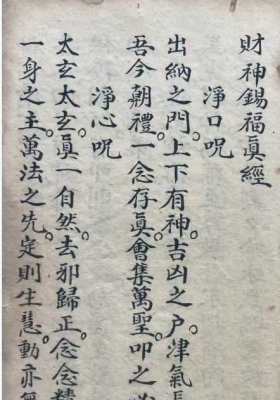 財神錫福眞經
淨口呪
出納之門。上下有神。吉凶之户。津氣長
吾今朝禮。一念存眞。會集萬聖。叩之
淨心呪
太玄太玄。眞一自然。去邪歸正。念念精
一身之主。萬法之先。定則生慧。動亦無